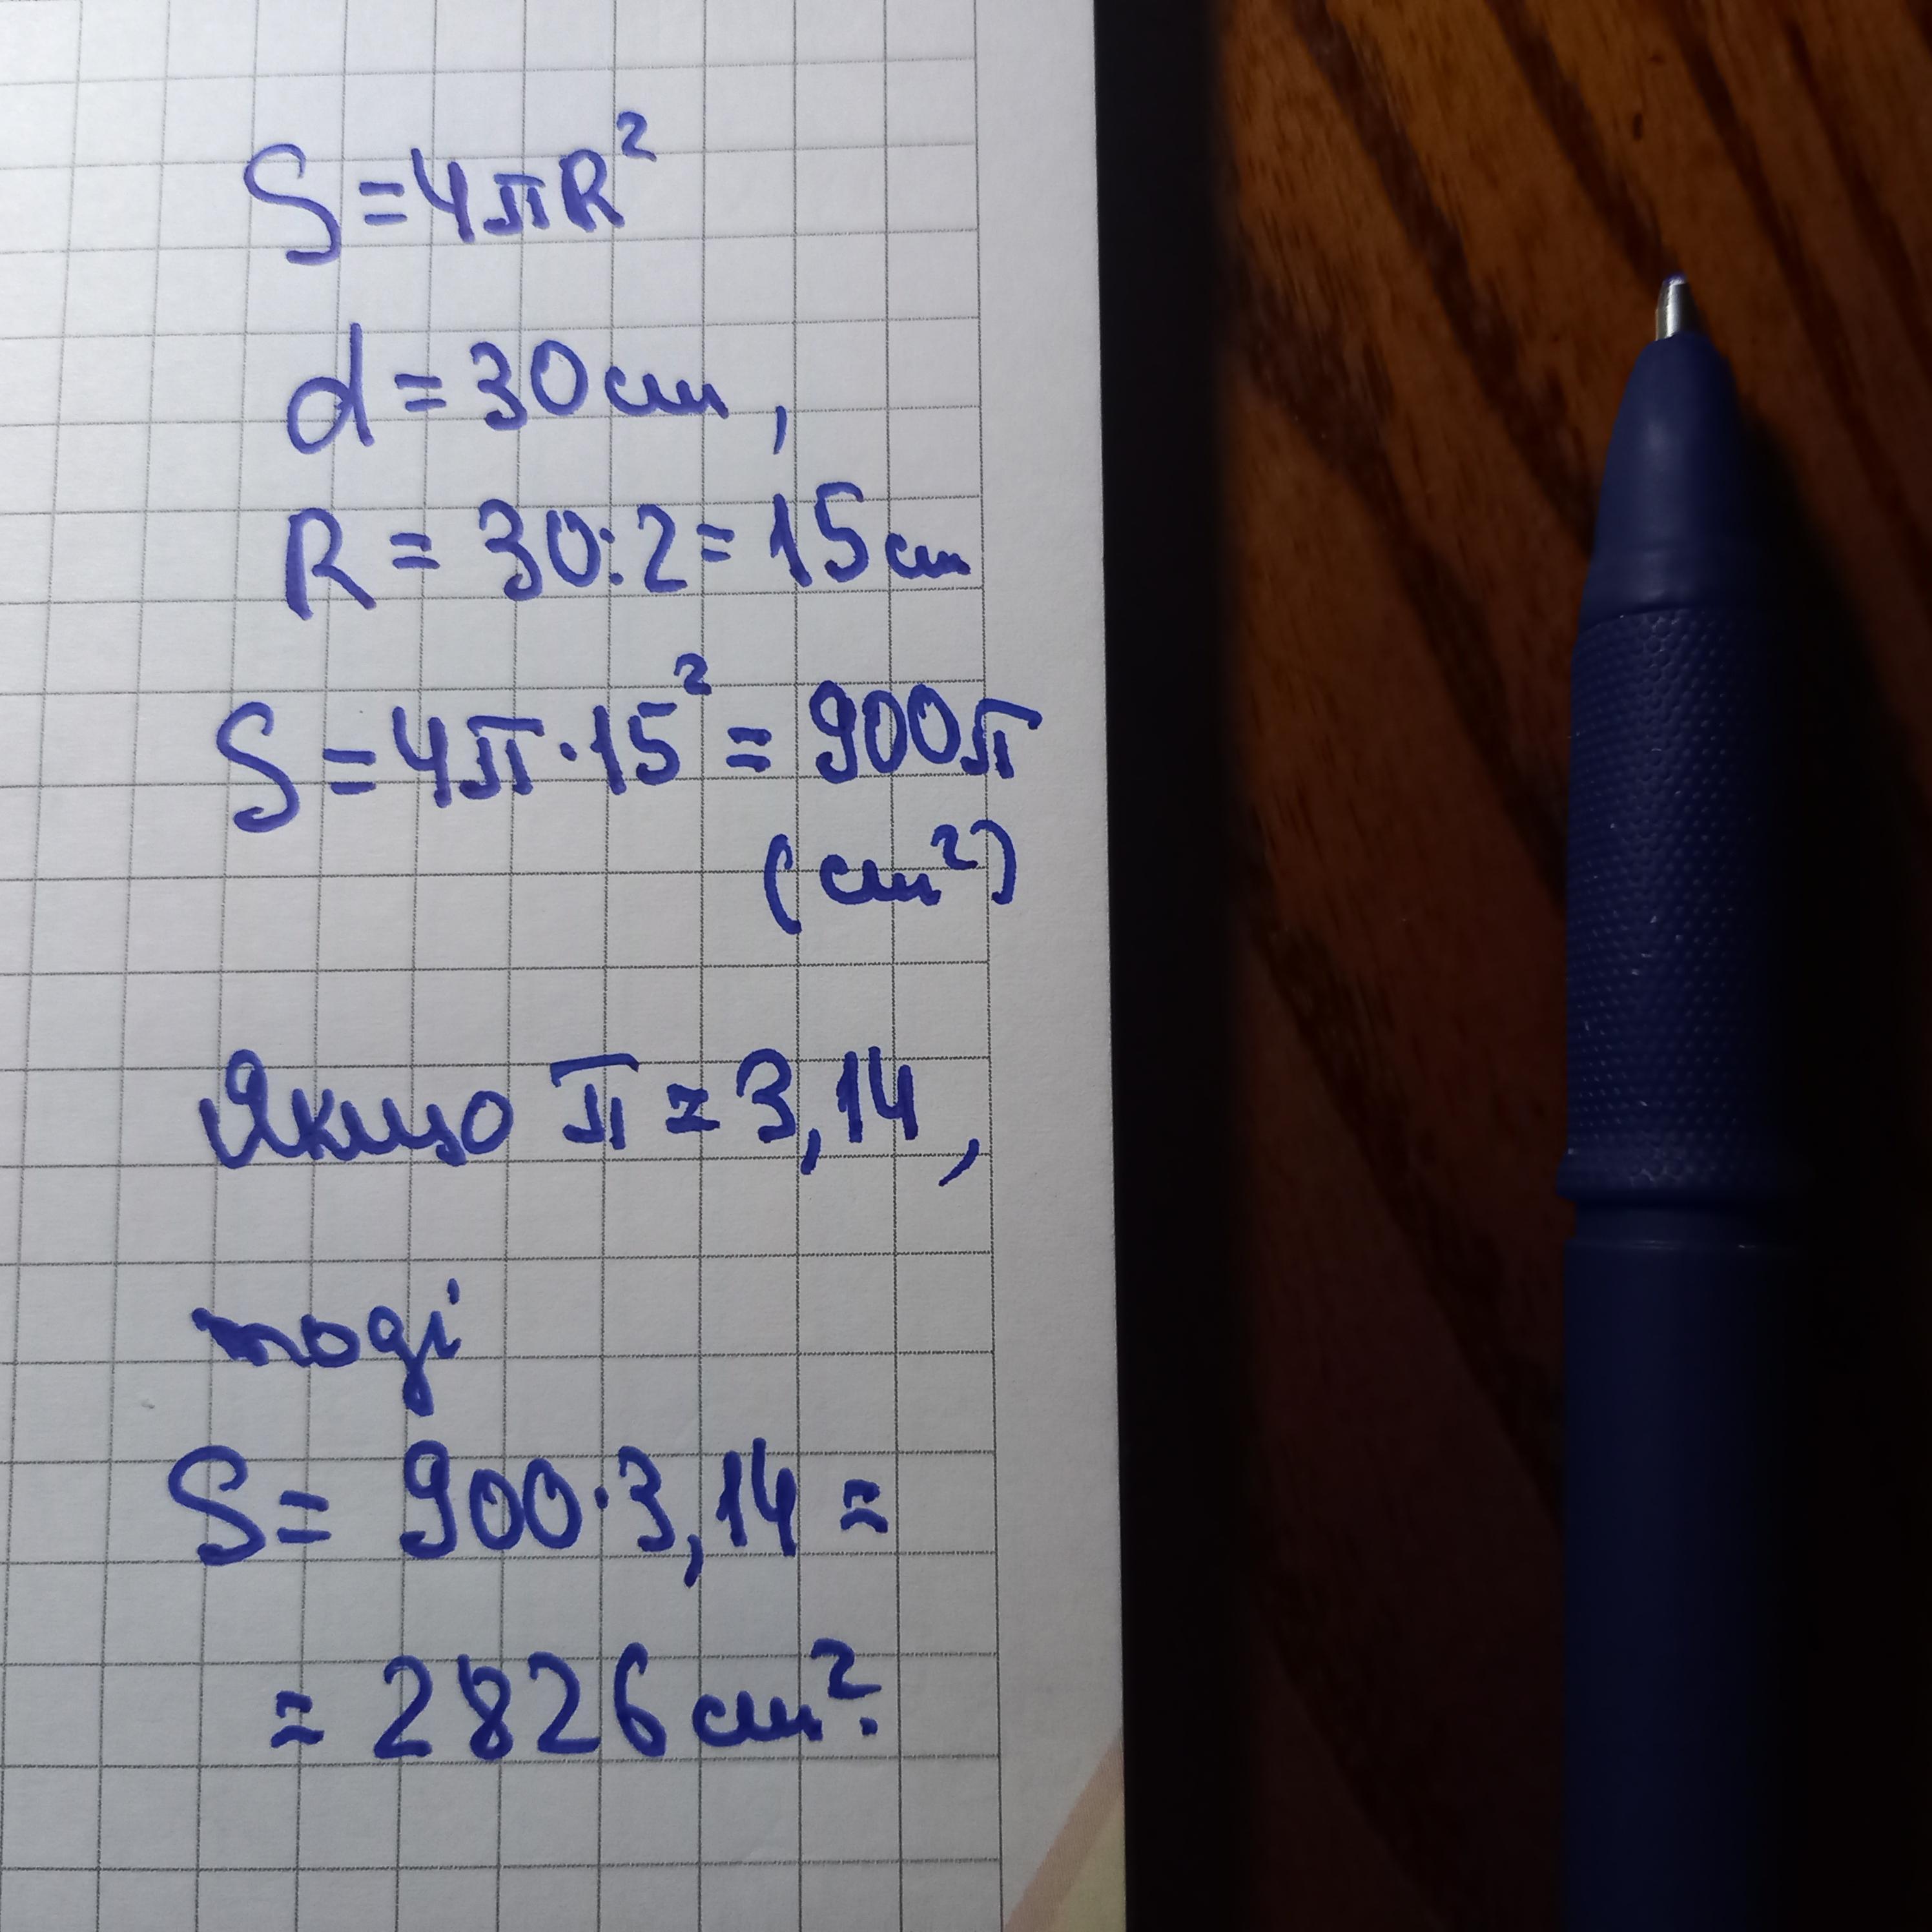 S = 4πR²
d = 30 cm,
R = 30:2 = 15 cm
S = 4π · 15² = 900π
(cm²)
Якщо π = 3,14,
тоді
S = 900 · 3,14 =
= 2826 cm².